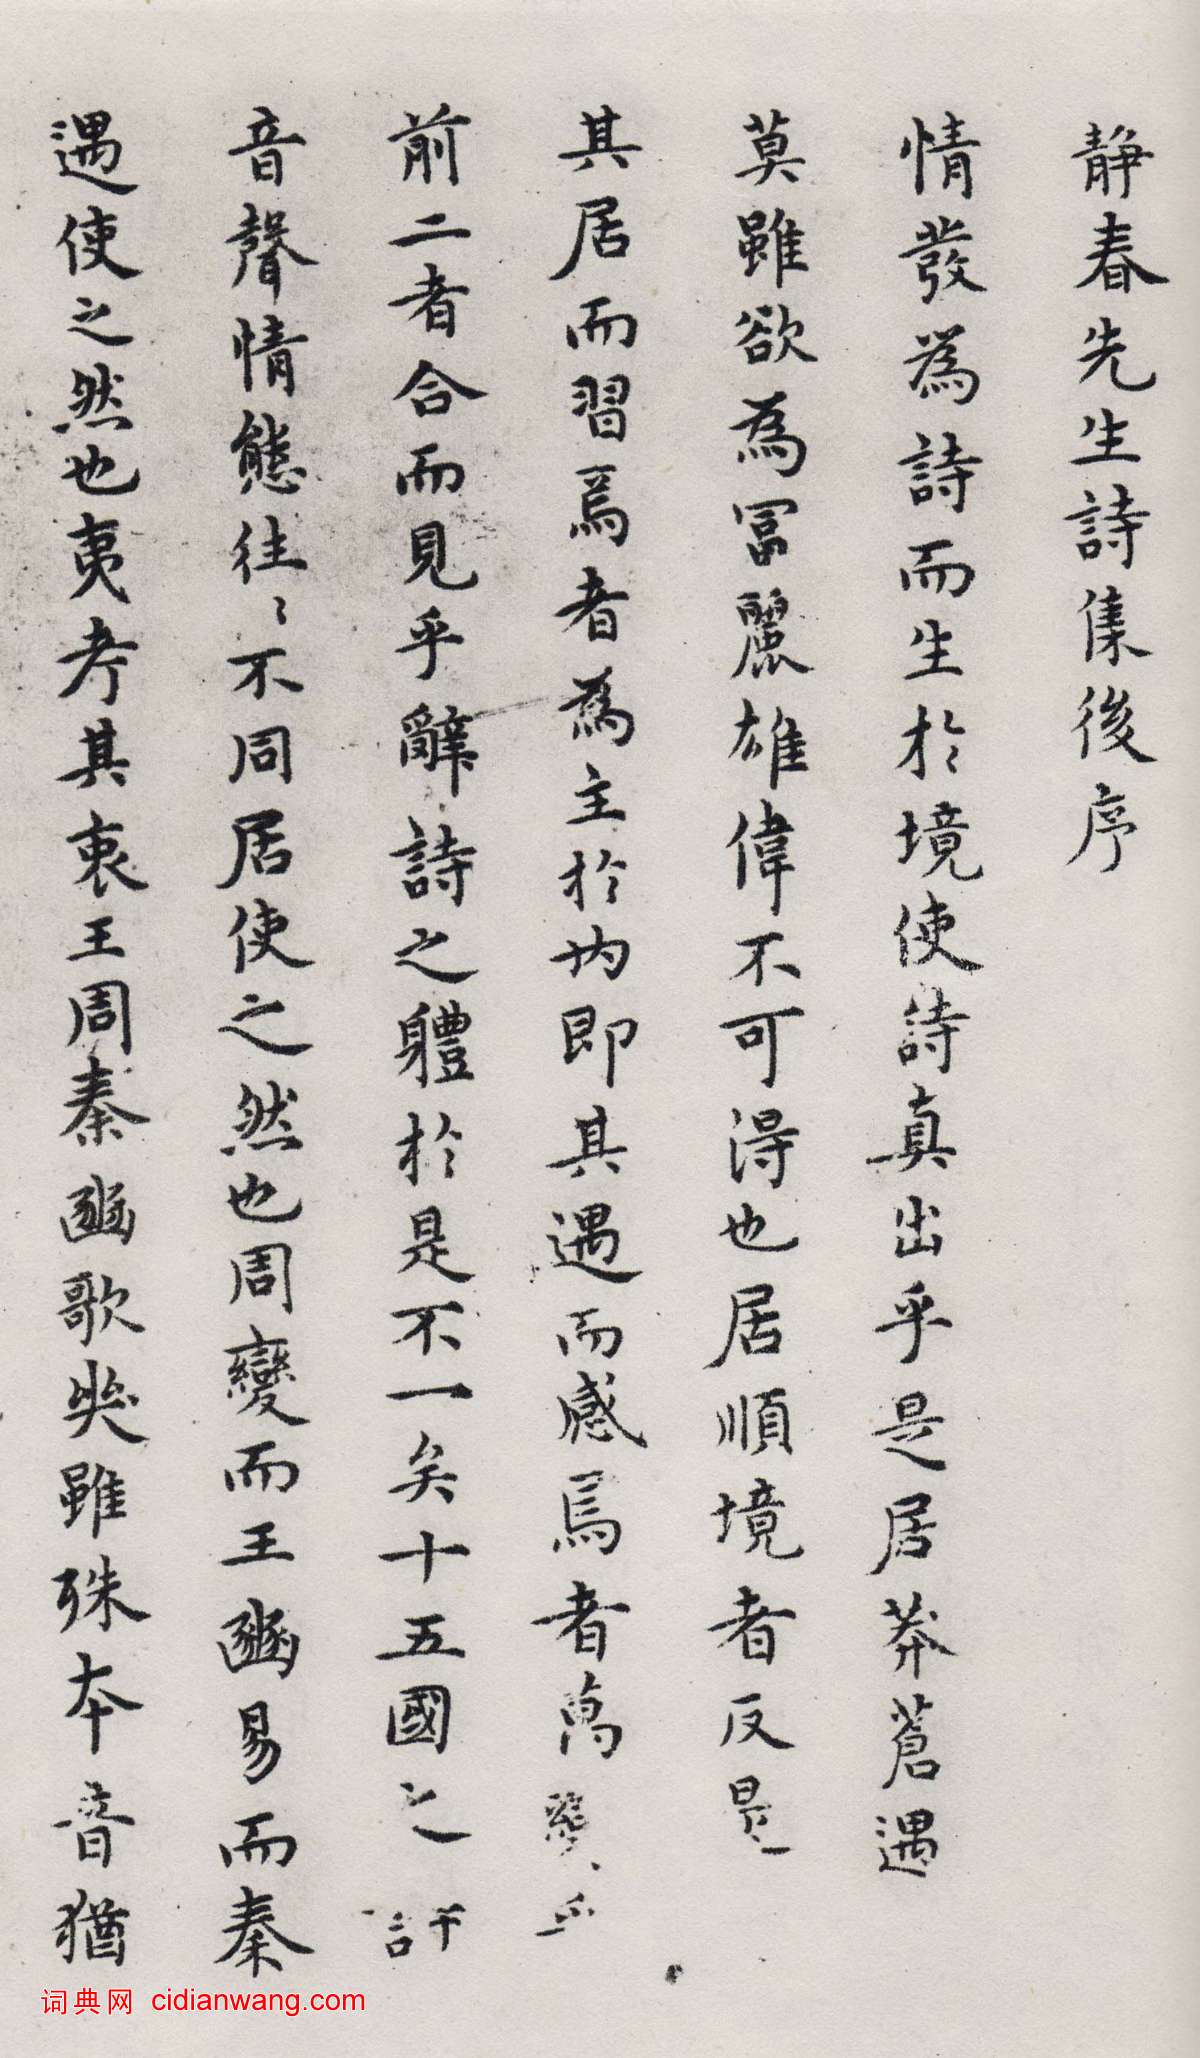 靜春先生詩集後序
情發為詩而生於境使詩真出乎是居莽蒼遇
莫雖欲為冨麗雄偉不可得也居順境者反是
其居而習焉者為主於內即其遇而感焉者萬變
前二者合而見乎辭詩之軆於是不一矣十五國之詩
音聲情態往〻不同居使之然也周變而王豳易而秦
遇使之然也夷考其衷王周秦豳歌哭雖殊本音猶
词典网 cidianwang.com